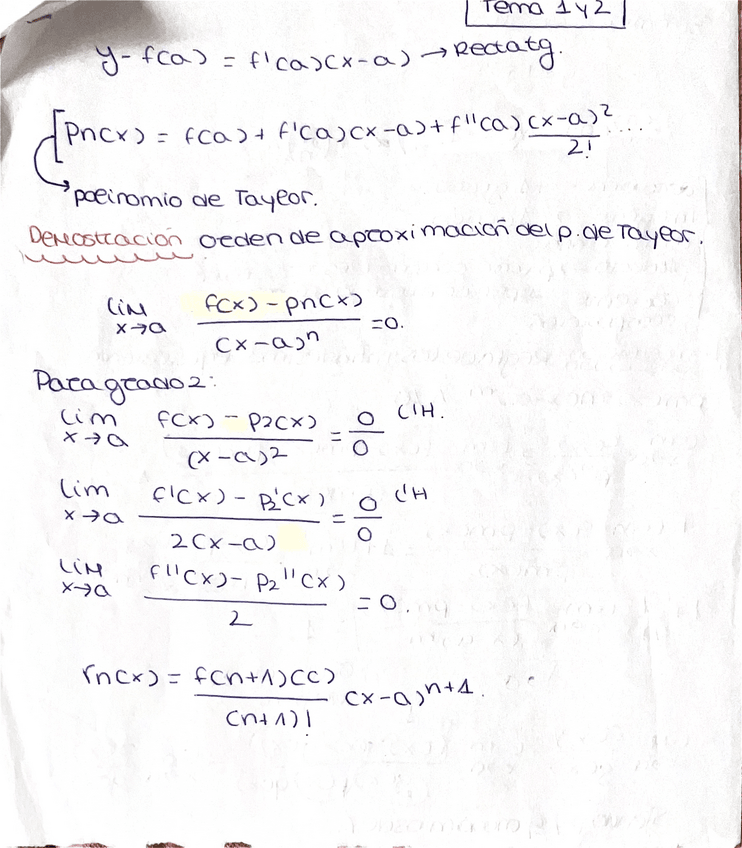 Tema 1 y 2
y - f(a) = f'(a)(x-a) → Recta tg.
Pn(x) = f(a) + f'(a)(x-a) + f''(a) (x-a)²/2! ....
polinomio de Taylor.
Demostración orden de aproximación del p. de Taylor.
lim x→a f(x) - pn(x)/(x-a)ⁿ = 0.
Para grado 2:
lim x→a f(x) - P2(x)/(x-a)² = 0/0 L'H.
lim x→a f'(x) - P2'(x)/2(x-a) = 0/0 L'H
lim x→a f''(x) - P2''(x)/2 = 0.
rn(x) = f(n+1)(c)/(n+1)! (x-a)ⁿ⁺¹.